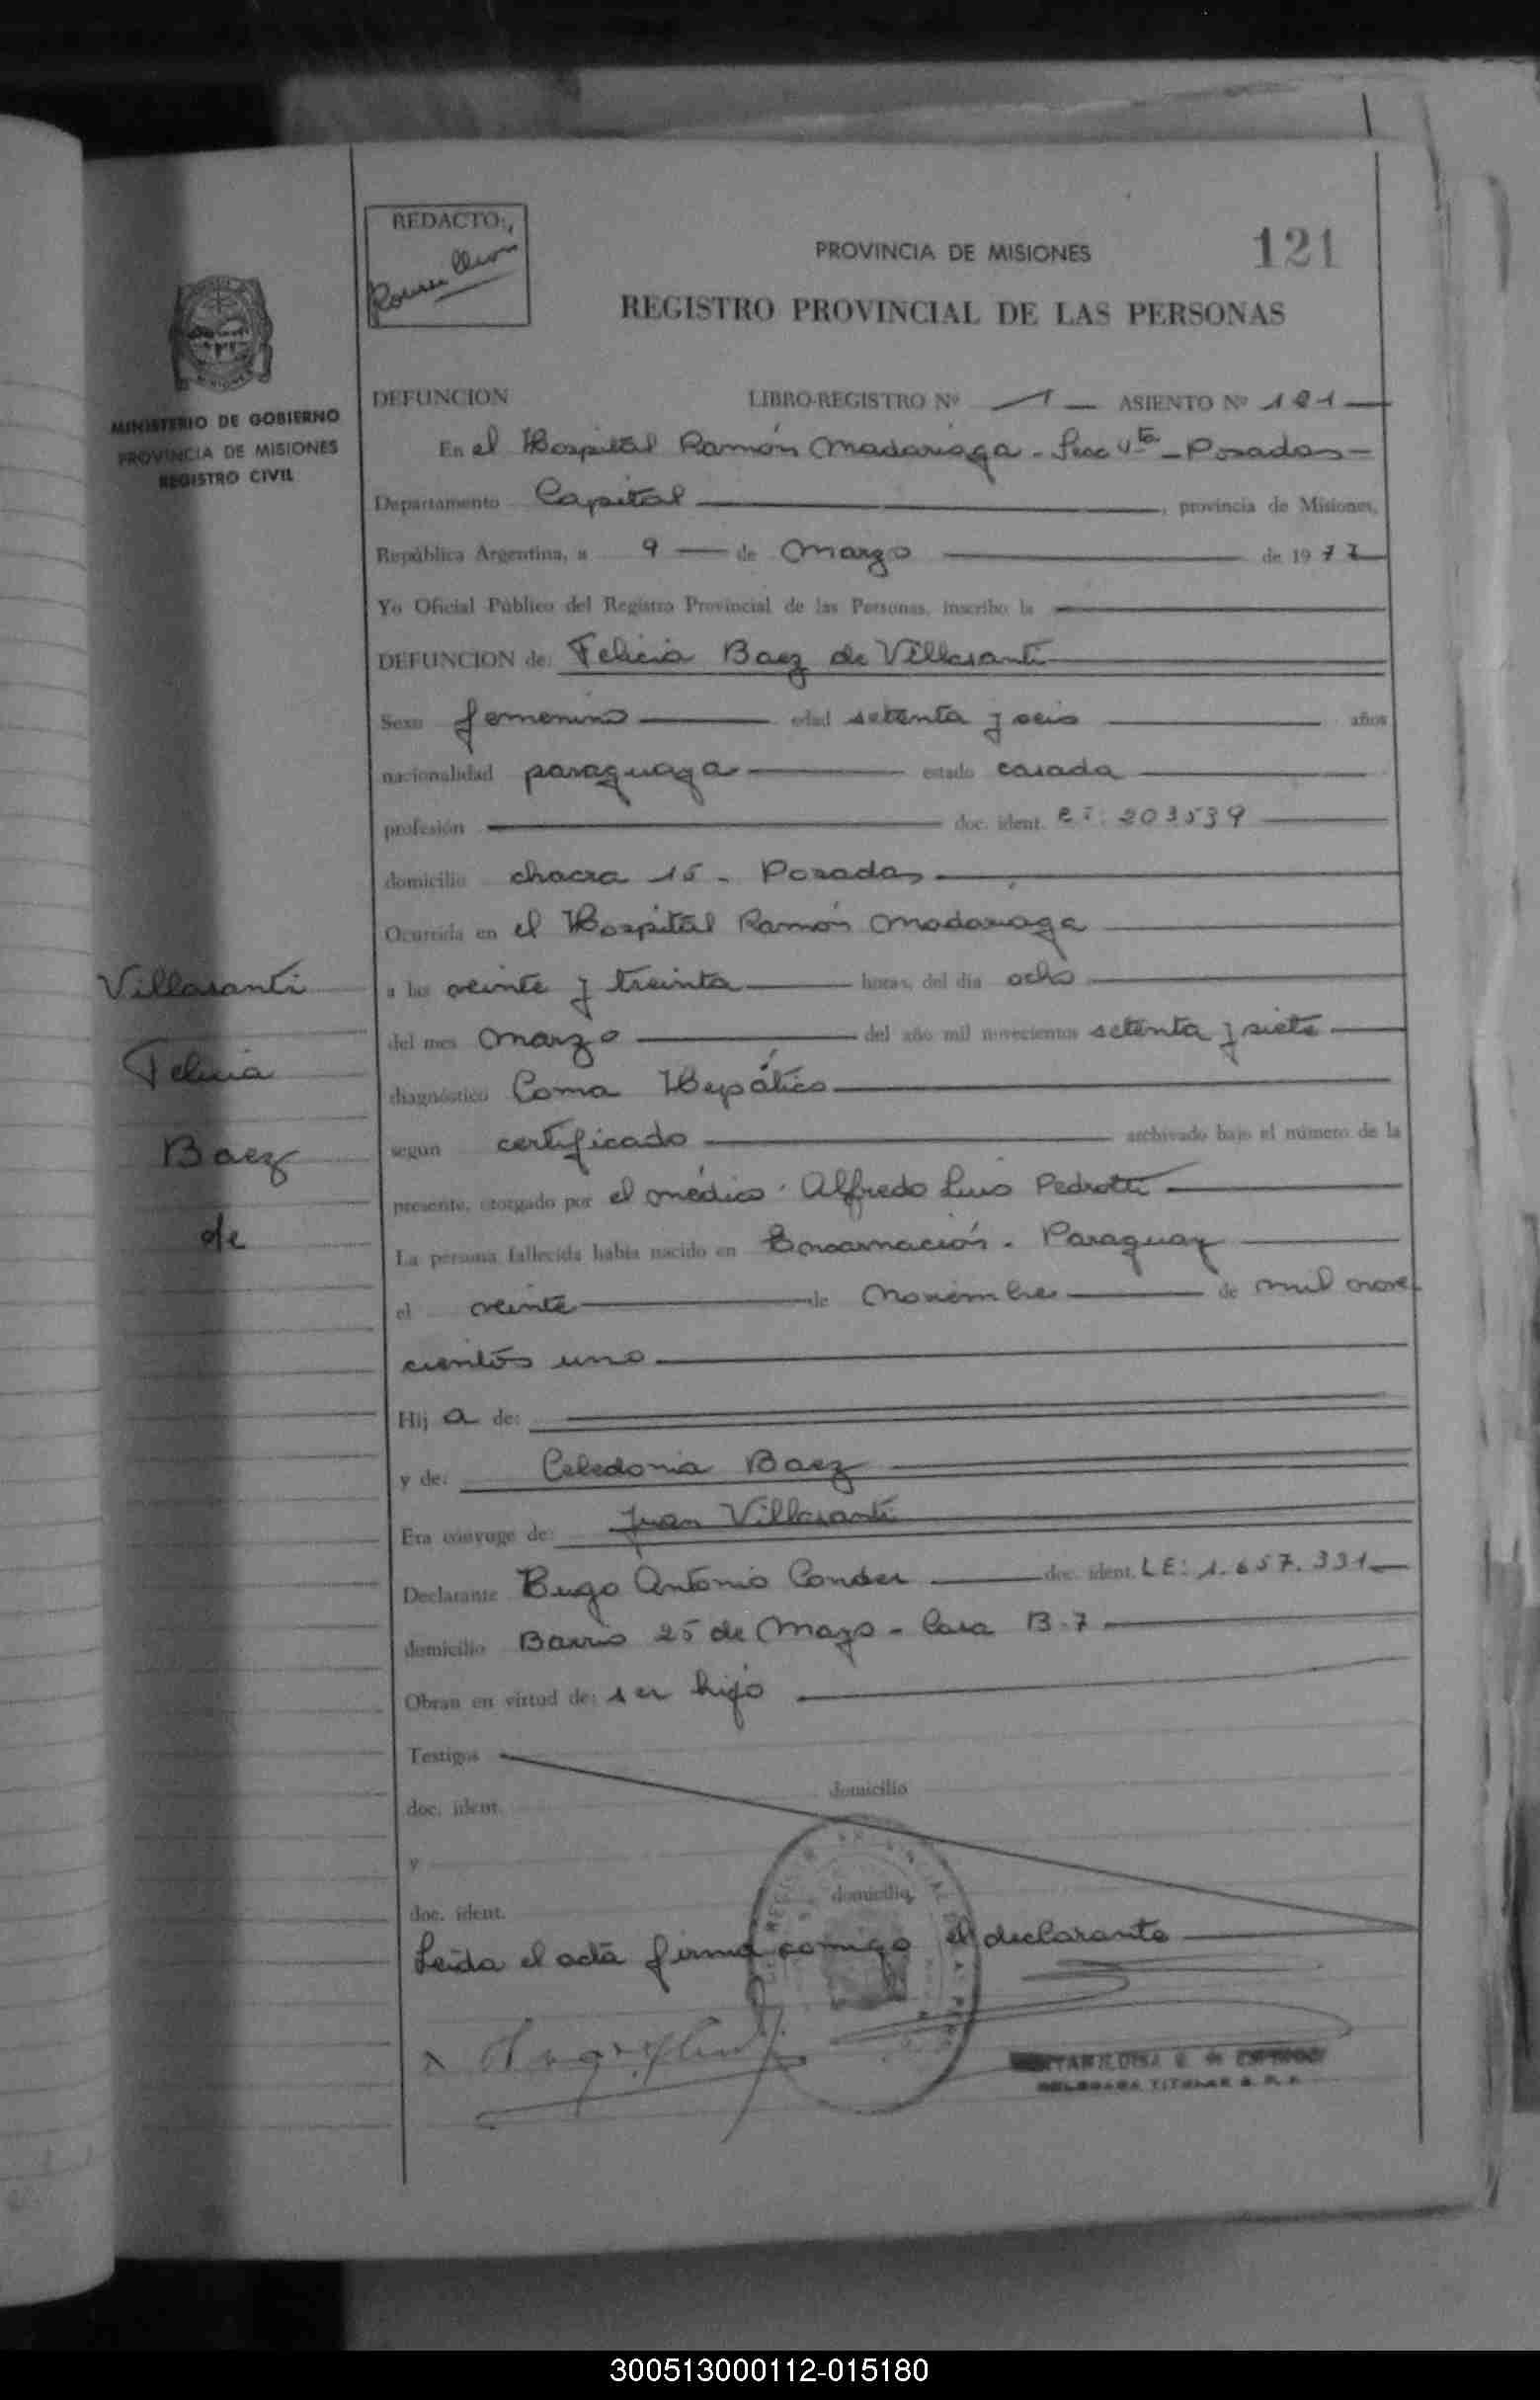 REDACTO:
PROVINCIA DE MISIONES
121
REGISTRO PROVINCIAL DE LAS PERSONAS
MINISTERIO DE GOBIERNO
PROVINCIA DE MISIONES
REGISTRO CIVIL
DEFUNCION LIBRO-REGISTRO Nº 1 ASIENTO Nº 121
En el Hospital Ramón Madariaga - Secc 4ta - Posadas -
Departamento Capital, provincia de Misiones,
República Argentina, a 9 de Marzo de 1977
Yo Oficial Público del Registro Provincial de las Personas, inscribo la
DEFUNCION de: Felicia Baez de Villasanti
Sexo femenino edad setenta y seis años
nacionalidad paraguaya estado casada
profesión doc. ident. CI: 203539
domicilio chacra 15 - Posadas
Ocurrida en el Hospital Ramón Madariaga
a las veinte y treinta horas, del día ocho
del mes Marzo del año mil novecientos setenta y siete
diagnóstico Coma Hepático
segun certificado archivado bajo el número de la
presente, otorgado por el médico Alfredo Luis Pedrotti
La persona fallecida había nacido en Encarnación - Paraguay
el veinte de Noviembre de mil nove
cientos uno
Hij a de:
y de: Celedonia Baez
Era cónyuge de: Juan Villasanti
Declarante Hugo Antonio doc. ident. LE: 1.657.331
domicilio Barrio 25 de Mayo - Casa B-7
Obran en virtud de: ser hijo
Testigos
domicilio
doc. ident.
y
domicilio
doc. ident.
Leída el acta firma comigo el declarante
DELEGADA TITULAR R. P. P.
Villasanti
Felicia
Baez
de
300513000112-015180